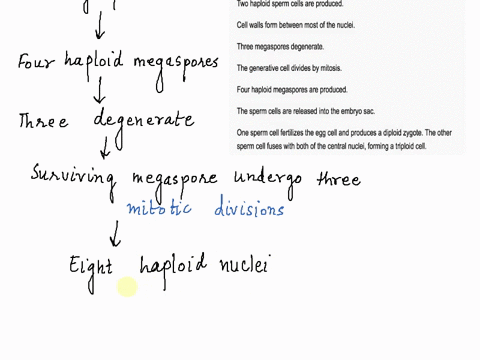 Four haploid megaspores
Three degenerate
Surviving megaspore undergo three
mitotic divisions
Eight haploid nuclei
Two haploid sperm cells are produced.
Cell walls form between most of the nuclei.
Three megaspores degenerate.
The generative cell divides by mitosis.
Four haploid megaspores are produced.
The sperm cells are released into the embryo sac.
One sperm cell fertilizes the egg cell and produces a diploid zygote. The other
sperm cell fuses with both of the central nuclei, forming a triploid cell.